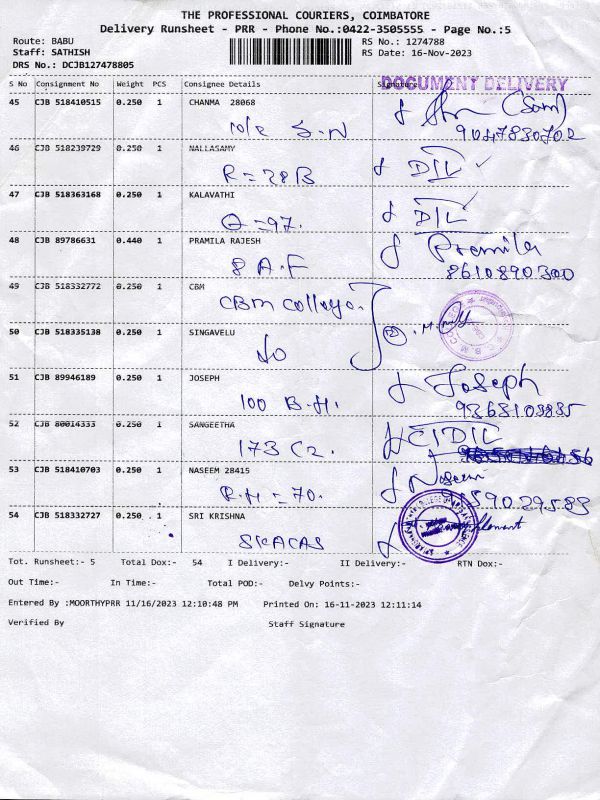 THE PROFESSIONAL COURIERS, COIMBATORE
Delivery Runsheet - PRR - Phone No.:0422-3505555 - Page No.:5
Route: BABU
Staff: SATHISH
DRS No.: DCJB127478805
RS No.: 1274788
RS Date: 16-Nov-2023
S No Consignment No Weight PCS Consignee Details Signature
DOCUMENT DELIVERY
45 CJB 518410515 0.250 1 CHANMA 28068
S.N (Sam)
9047830702
46 CJB 518239729 0.250 1 NALLASAMY
R=28B DIL
47 CJB 518363168 0.250 1 KALAVATHI
Q=97. DIL
48 CJB 89786631 0.440 1 PRAMILA RAJESH
8 A.F Pramila
8610890300
49 CJB 518332772 0.250 1 CBM
CBM College.
50 CJB 518335138 0.250 1 SINGAVELU
do
51 CJB 89946189 0.250 1 JOSEPH
100 B.H. Joseph
9368103835
52 CJB 80014333 0.250 1 SANGEETHA
173 C2. CIDIL
53 CJB 518410703 0.250 1 NASEEM 28415
R.H=70. Naseem
54 CJB 518332727 0.250 1 SRI KRISHNA
SKACAS
Tot. Runsheet:- 5 Total Dox:- 54 I Delivery:- II Delivery:- RTN Dox:-
Out Time:- In Time:- Total POD:- Delvy Points:-
Entered By :MOORTHYPRR 11/16/2023 12:10:48 PM Printed On: 16-11-2023 12:11:14
Verified By Staff Signature